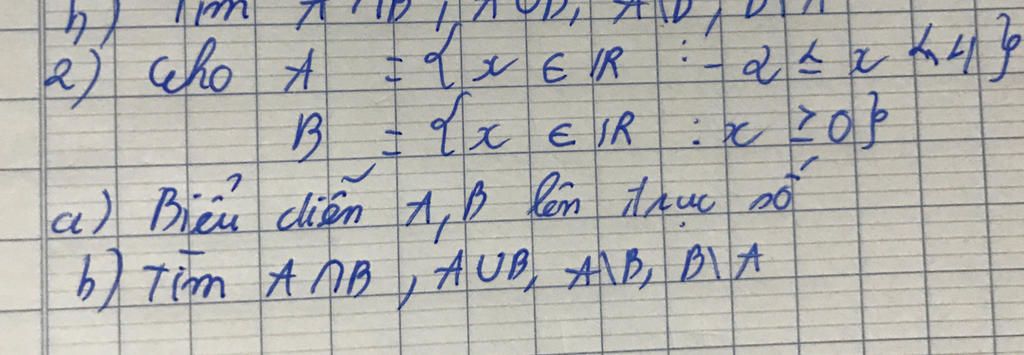 b) Tìm A∩B, A∪B, A\B, B\A
2) Cho A = {x ∈ IR : -2 ≤ x < 4}
B = {x ∈ IR : x ≥ 0}
a) Biểu diễn A, B lên trục số
b) Tìm A∩B, A∪B, A\B, B\A